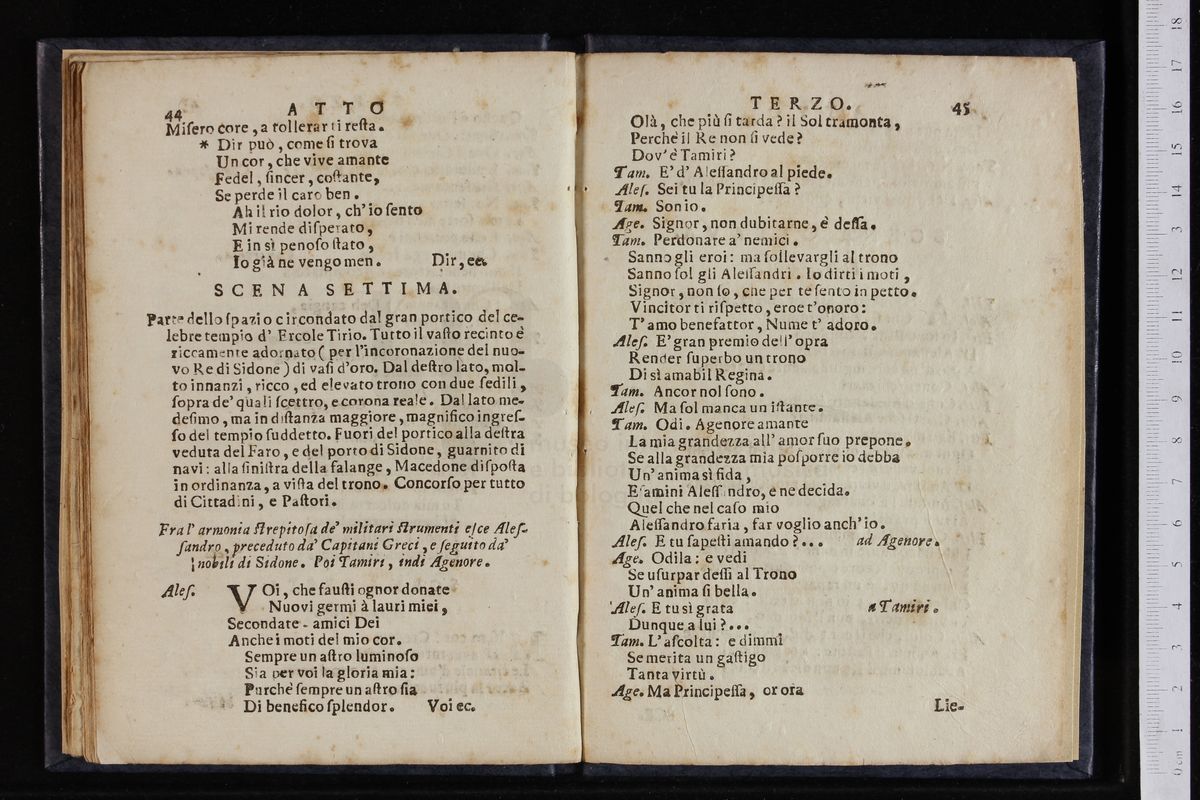 44 ATTO
Miſero core, a tollerar ti reſta.
* Dir può, come ſi trova
Un cor, che vive amante
Fedel, ſincer, coſtante,
Se perde il caro ben.
Ah il rio dolor, ch'io ſento
Mi rende diſperato,
E in sì penoſo ſtato,
Io già ne vengo men. Dir, ec.
SCENA SETTIMA.
Parte dello ſpazio circondato dal gran portico del ce-
lebre tempio d' Ercole Tirio. Tutto il vaſto recinto è
riccamente adornato ( per l'incoronazione del nuo-
vo Re di Sidone ) di vaſi d'oro. Dal deſtro lato, mol-
to innanzi, ricco, ed elevato trono con due ſedili,
ſopra de' quali ſcettro, e corona reale. Dal lato me-
deſimo, ma in diſtanza maggiore, magnifico ingreſ-
ſo del tempio ſuddetto. Fuori del portico alla deſtra
veduta del Faro, e del porto di Sidone, guarnito di
navi: alla ſiniſtra della falange, Macedone diſpoſta
in ordinanza, a viſta del trono. Concorſo per tutto
di Cittadini, e Paſtori.
Fra l' armonia ſtrepitoſa de' militari ſtrumenti eſce Aleſ-
ſandro, preceduto da' Capitani Greci, e ſeguito da'
nobili di Sidone. Poi Tamiri, indi Agenore.
Aleſ. VOi, che fauſti ognor donate
Nuovi germi à lauri miei,
Secondate - amici Dei
Anche i moti del mio cor.
Sempre un aſtro luminoſo
Sia per voi la gloria mia:
Purchè ſempre un aſtro ſia
Di benefico ſplendor. Voi ec.
TERZO. 45
Olà, che più ſi tarda? il Sol tramonta,
Perchè il Re non ſi vede?
Dov'è Tamiri?
Tam. E' d' Aleſſandro al piede.
Aleſ. Sei tu la Principeſſa?
Tam. Son io.
Age. Signor, non dubitarne, è deſſa.
Tam. Perdonare a' nemici.
Sanno gli eroi: ma ſollevargli al trono
Sanno ſol gli Aleſſandri. Io dirti i moti,
Signor, non ſo, che per te ſento in petto.
Vincitor ti riſpetto, eroe t'onoro:
T'amo benefattor, Nume t' adoro.
Aleſ. E' gran premio dell'opra
Render ſuperbo un trono
Di sì amabil Regina.
Tam. Ancor nol ſono.
Aleſ. Ma ſol manca un iſtante.
Tam. Odi. Agenore amante
La mia grandezza all' amor ſuo prepone.
Se alla grandezza mia poſporre io debba
Un' anima sì fida,
Eſamini Aleſſandro, e ne decida.
Quel che nel caſo mio
Aleſſandro faria, far voglio anch'io.
Aleſ. E tu ſapeſti amando?... ad Agenore.
Age. Odila: e vedi
Se uſurpar deſſi al Trono
Un' anima ſi bella.
Aleſ. E tu sì grata a Tamiri.
Dunque a lui?...
Tam. L'aſcolta: e dimmi
Se merita un gaſtigo
Tanta virtù.
Age. Ma Principeſſa, or ora
Lie-
0 cm 1 2 3 4 5 6 7 8 9 10 11 12 13 14 15 16 17 18